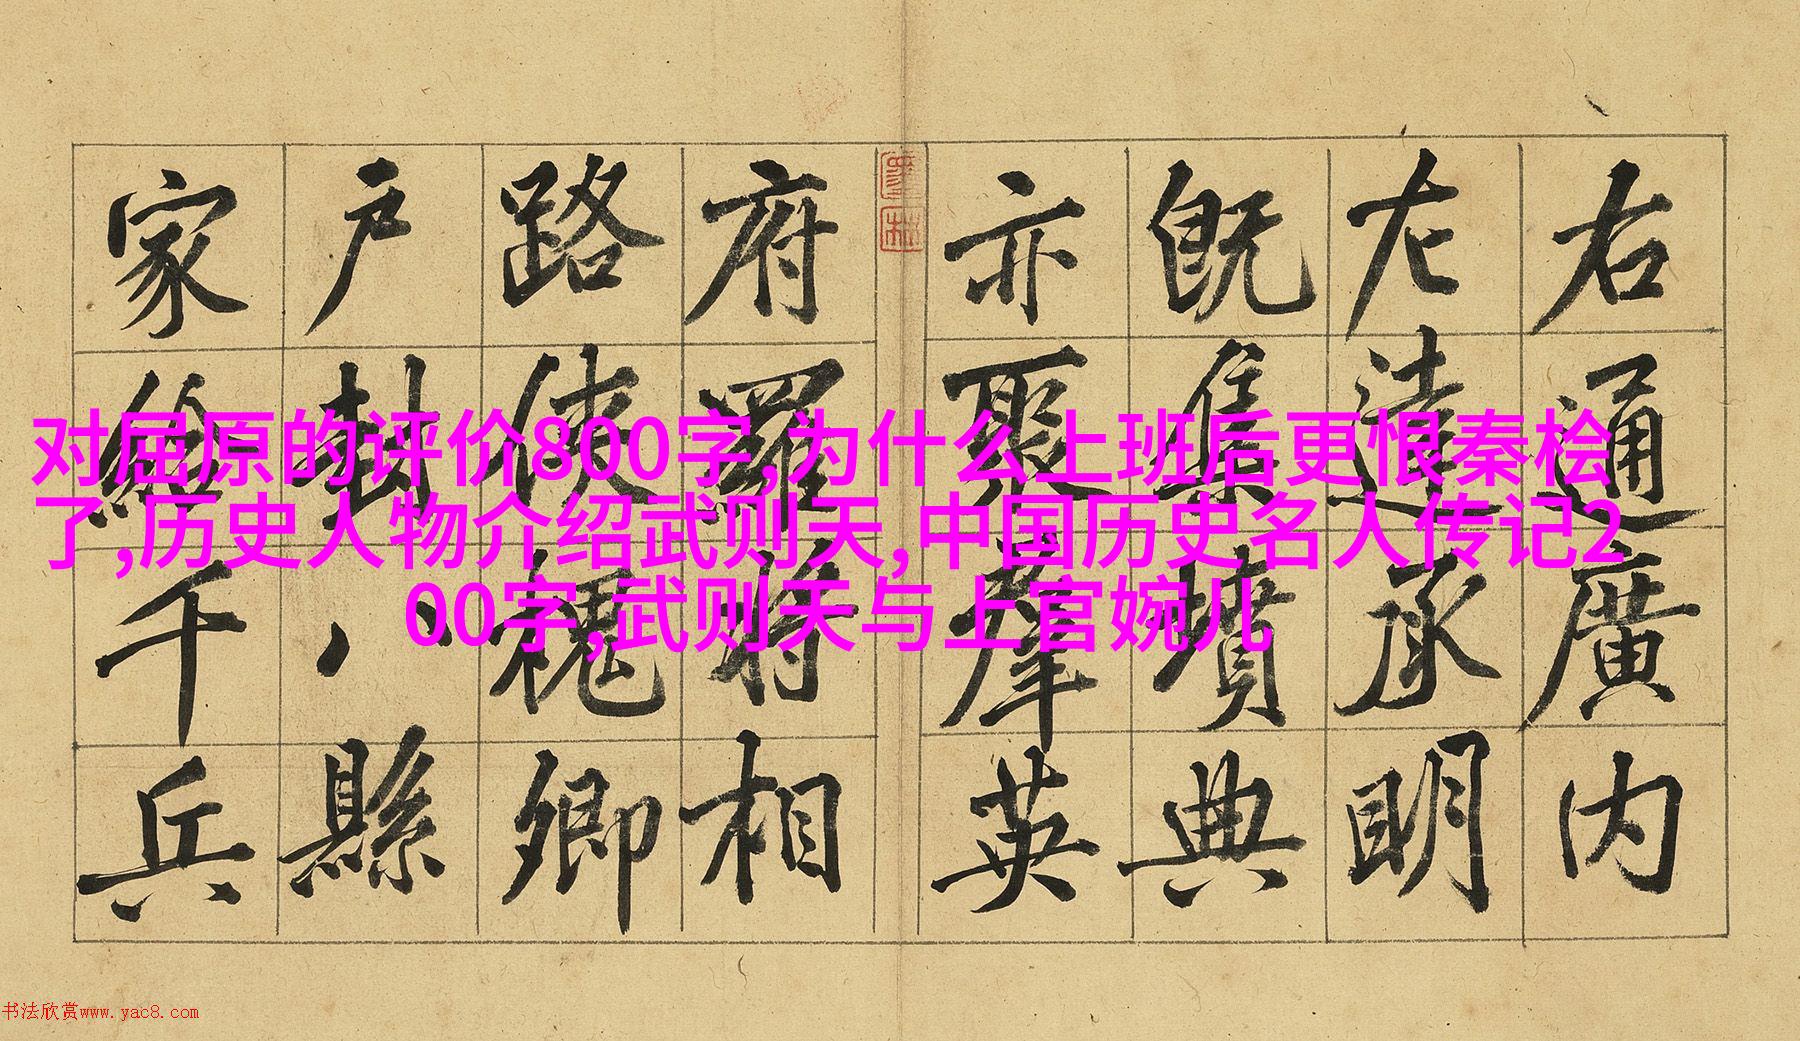 对屈原的评价800字,为什么上班后更恨秦桧
了,历史人物介绍武则天,中国历史名人传记2
00字,武则天与上官婉儿
右通廣内
左達承明
既集墳典
亦聚羣英
府羅將相
路俠槐卿
戶封八縣
家給千兵
书法欣赏www.yac8.com